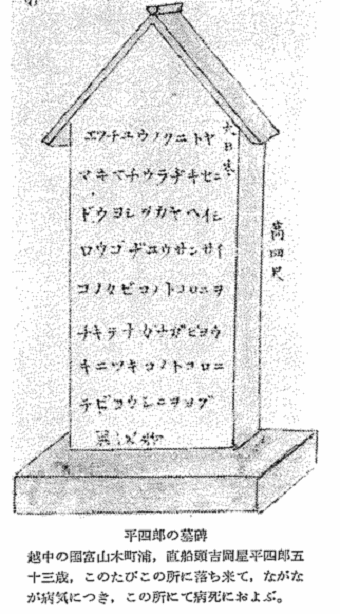 大日本
エッチユウノクニトヤ
マキマチウラヂキセニ
ドウヨシヲカヤヘイシ
ロウゴヂユウサンサイ
コノタビコノトコロニヲ
チキテナガナガビヨウ
キニツキコノトコロニ
テビヨウシニヲヨブ
高四尺
平四郎の墓碑
越中の國富山木町浦，直船頭吉岡屋平四郎五
十三歳，このたびこの所に落ち来て，ながな
が病気につき，この所にて病死におよぶ。